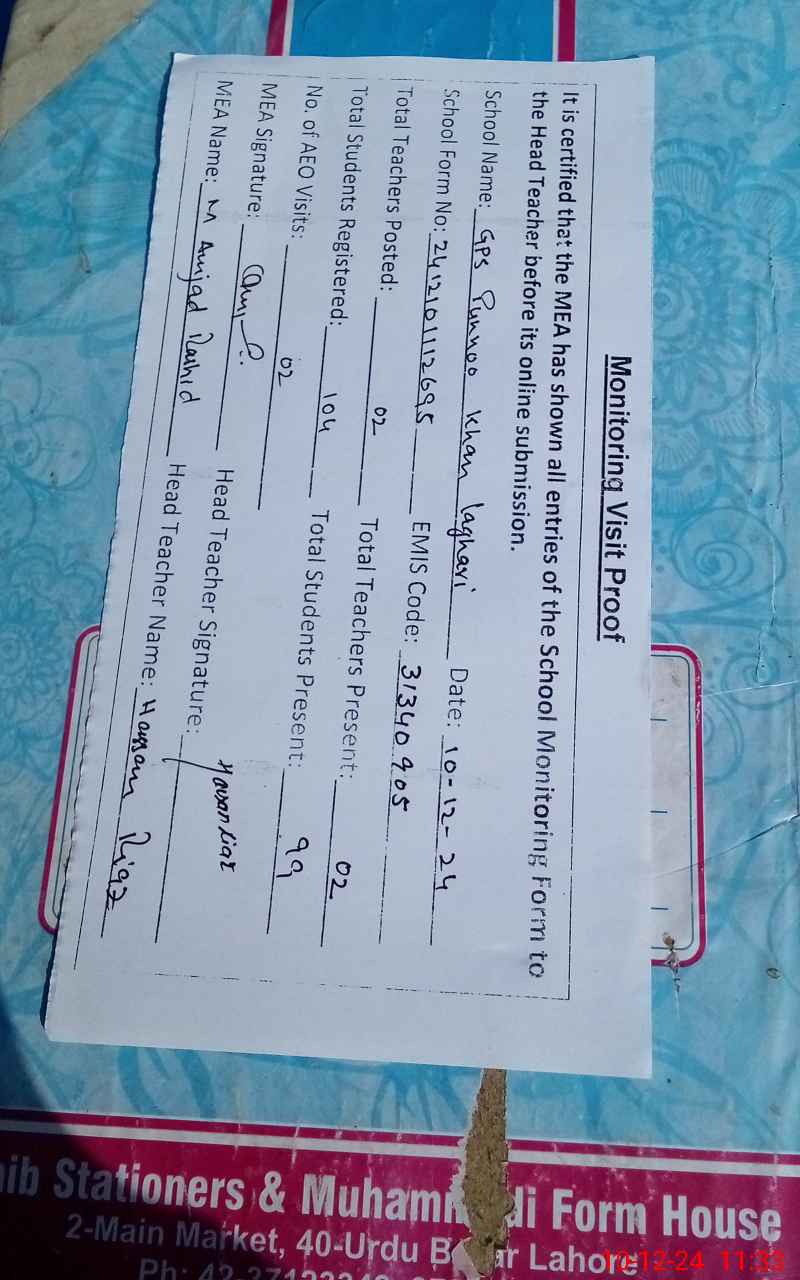 Monitoring Visit Proof
It is certified that the MEA has shown all entries of the School Monitoring Form to
the Head Teacher before its online submission.
School Name: GPS Punnoo Khan laghari Date: 10-12-24
School Form No: 2412101112695 EMIS Code: 31340905
Total Teachers Posted: 02 Total Teachers Present: 02
Total Students Registered: 104 Total Students Present: 99
No. of AEO Visits: 02
MEA Signature: Head Teacher Signature:
MEA Name: M Amjad Rashid Head Teacher Name: Hassan Riaz
Stationers & Form House
2-Main Market, 40-Urdu Lahore
Ph: 42-
10-12-24 11:33